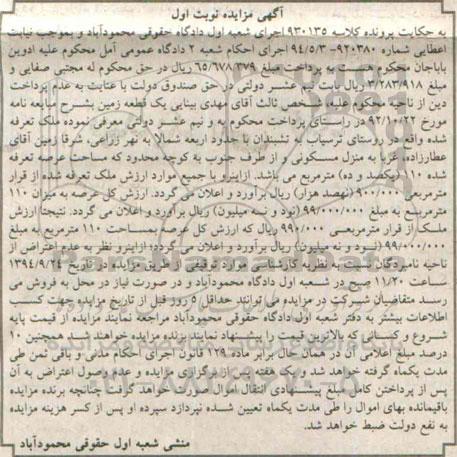 آگهی مزایده نوبت اول
به حکایت پرونده کلاسه ۹۳۰۱۳۵ اجرای شعبه اول دادگاه حقوقی محمودآباد و بموجب نیابت
اعطایی شماره ۹۲۰۳۸۰-۹۴/۵/۳ اجرای احکام شعبه ۲ دادگاه عمومی آمل محکوم علیه ادوین
باباجان محکوم است به پرداخت مبلغ ۶۵/۶۷۸/۳۷۹ ریال در حق محکوم له مجتبی صفایی و
مبلغ ۳/۲۸۳/۹۱۸ ریال بابت نیم عشر دولتی در حق صندوق دولت با عنایت به عدم پرداخت
دین از ناحیه محکوم علیه، شخص ثالث آقای مهدی بینایی یک قطعه زمین بشرح مبایعه نامه
مورخ ۹۲/۱۰/۲۲ در راستای پرداخت محکوم به و نیم عشر دولتی معرفی نموده ملک تعرفه
شده واقع در روستای ترسیاب به تشبندان با حدود اربعه شمالا به نهر زراعی، شرقا زمین آقای
عطارزاده غربا به منزل مسکونی و از طرف جنوب به کوچه محدود که مساحت عرصه تعرفه
شده ۱۱۰ (یکصد و ده) مترمربع می باشد. ازاینرو با جمیع موارد ارزش ملک تعرفه شده از قرار
مترمربعی ۹۰۰/۰۰۰ (نهصد هزار) ریال برآورد و اعلان می گردد. ارزش کل عرصه به میزان ۱۱۰
مترمربع به مبلغ ۹۹/۰۰۰/۰۰۰ (نود و نه میلیون) ریال برآورد و اعلان می گردد. نتیجتا ارزش
ملک از قرار مترمربعی ۹۹۰/۰۰۰ ریال که ارزش کل عرصه بمساحت ۱۱۰ مترمربع به مبلغ
۹۹/۰۰۰/۰۰۰ (نود و نه میلیون) ریال برآورد و اعلان می گردد؛ ازاینرو نظر به عدم اعتراض از
ناحیه نامبردگان نسبت به نظریه کارشناسی موارد توقیفی از طریق مزایده در تاریخ ۱۳۹۴/۹/۲۴
ساعت ۱۱/۲۰ صبح در شعبه اول دادگاه محمودآباد و در صورت نیاز در محل به فروش می
رسد متقاضیان شرکت در مزایده می توانند حداقل ۵ روز قبل از تاریخ مزایده جهت کسب
اطلاعات بیشتر به دفتر شعبه اول دادگاه حقوقی محمودآباد مراجعه نمایند مزایده از قیمت پایه
شروع و کسانی که بالاترین قیمت را پیشنهاد نمایند برنده مزایده خواهند شد. همچنین ۱۰
درصد مبلغ اعلامی آن در همان حال برابر ماده ۱۲۹ قانون اجرای احکام مدنی و باقی ثمن طی
مدت یکماه گرفته خواهد شد و یک هفته پس از برگزاری مزایده و عدم وصول اعتراض به آن
پس از پرداختن کامل مبلغ پیشنهادی انتقال اموال صورت خواهد گرفت چنانچه برنده مزایده
باقیمانده بهای اموال را طی مدت یکماه تعیین شده نپردازد سپرده او پس از کسر هزینه مزایده
به نفع دولت ضبط خواهد شد.
منشی شعبه اول حقوقی محمودآباد
ParsNamadData